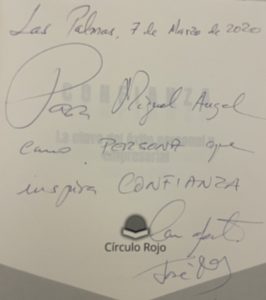 Las Palmas, 7 de Marzo de 2020
Para Miguel Angel
CONFIANZA
La clave del éxito personal y
empresarial
como PERSONA que
inspira CONFIANZA
Con afecto
Círculo Rojo
José